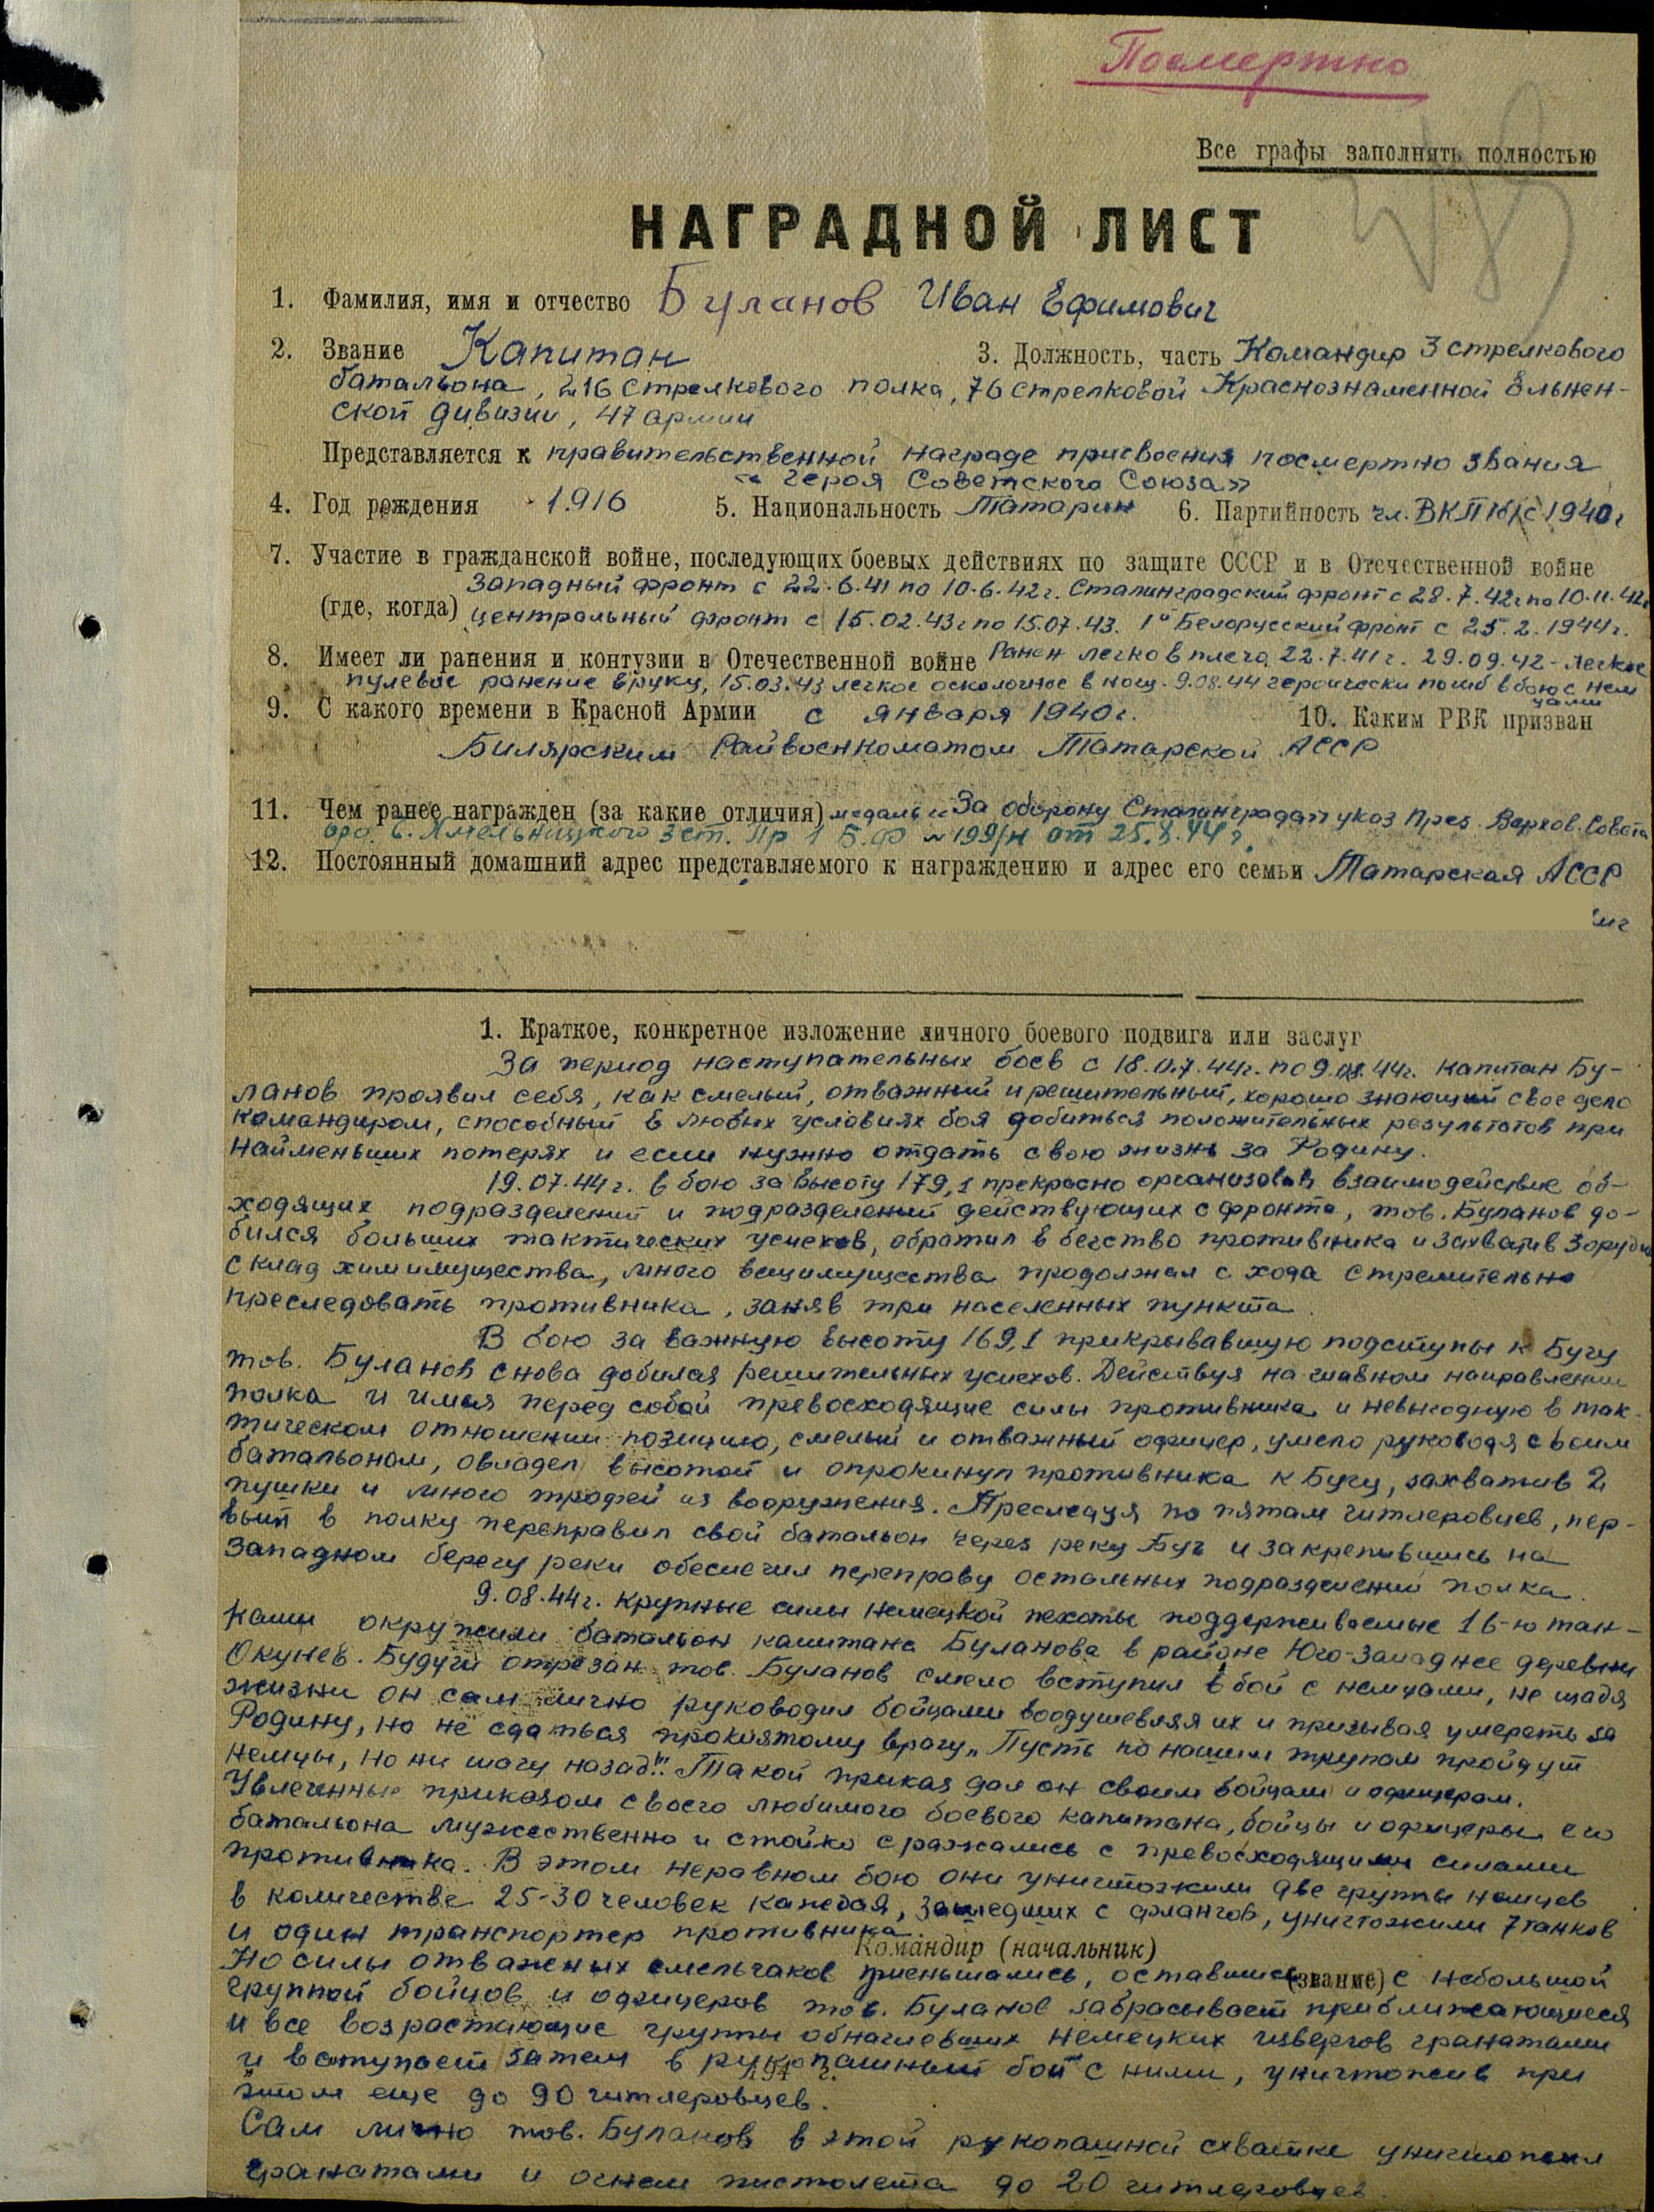 Посмертно
Все графы заполнять полностью
НАГРАДНОЙ ЛИСТ
1. Фамилия, имя и отчество Буланов Иван Ефимович
2. Звание Капитан 3. Должность, часть Командир 3 стрелкового
батальона, 216 стрелкового полка, 76 стрелковой Краснознаменной Ельнен-
ской дивизии, 47 армии
Представляется к правительственной награде присвоения посмертно звания
"Героя Советского Союза"
4. Год рождения 1916 5. Национальность Татарин 6. Партийность чл. ВКП(б) с 1940 г
7. Участие в гражданской войне, последующих боевых действиях по защите СССР и в Отечественной войне
Западный фронт с 22.6.41 по 10.6.42 г. Сталинградский фронт с 28.7.42 г по 10.11.42 г
(где, когда) Центральный фронт с 15.02.43 г по 15.07.43. 1й Белорусский фронт с 25.2.1944 г.
8. Имеет ли ранения и контузии в Отечественной войне Ранен легко в плечо 22.7.41 г. 29.09.42 - легкое
пулевое ранение в руку, 15.03.43 легкое осколочное в ногу. 9.08.44 героически погиб в бою с нем
цами
9. С какого времени в Красной Армии с января 1940 г. 10. Каким РВК призван
Билярским Райвоенкоматом Татарской АССР
11. Чем ранее награжден (за какие отличия) медаль "За оборону Сталинграда" указ През. Верхов. Совета
орд. Б. Хмельницкого 3 ст. Пр 1 Б.Ф №199/н от 25.8.44 г.
12. Постоянный домашний адрес представляемого к награждению и адрес его семьи Татарская АССР
1. Краткое, конкретное изложение личного боевого подвига или заслуг
За период наступательных боев с 18.07.44 г. по 9.08.44 г. капитан Бу-
ланов проявил себя, как смелый, отважный и решительный, хорошо знающий свое дело
командиром, способный в любых условиях боя добиться положительных результатов при
найменьших потерях и если нужно отдать свою жизнь за Родину.
19.07.44 г. в бою за высоту 179,1 прекрасно организовав взаимодействие об-
ходящих подразделений и подразделений действующих с фронта, тов. Буланов до-
бился больших тактических успехов, обратил в бегство противника и захватив 3 орудия
склад химимущества, много вещимущества продолжал с хода стремительно
преследовать противника, заняв три населенных пункта.
В бою за важную высоту 169,1 прикрывавшую подступы к Бугу
тов. Буланов снова добился решительных успехов. Действуя на главном направлении
полка и имея перед собой превосходящие силы противника и невыгодную в так-
тическом отношении позицию, смелый и отважный офицер, умело руководя своим
батальоном, овладел высотой и опрокинул противника к Бугу, захватив 2
пушки и много трофей из вооружения. Преследуя по пятам гитлеровцев, пер-
вый в полку переправил свой батальон через реку Буг и закрепившись на
западном берегу реки обеспечил переправу остальных подразделений полка.
9.08.44 г. крупные силы немецкой пехоты поддерживаемые 16-ю тан-
ками окружили батальон капитана Буланова в районе Юго-Западнее деревни
Окунев. Будучи отрезан тов. Буланов смело вступил в бой с немцами, не щадя
жизни он сам лично руководил бойцами воодушевляя их и призывая умереть за
Родину, но не сдаться проклятому врагу „Пусть по нашим трупам пройдут
немцы, но ни шагу назад!". Такой приказ дал он своим бойцам и офицерам.
Увлеченные приказом своего любимого боевого капитана, бойцы и офицеры его
батальона мужественно и стойко сражались с превосходящими силами
противника. В этом неравном бою они уничтожили две группы немцев
в количестве 25-30 человек каждая, зашедших с флангов, уничтожили 7 танков
и один транспортер противника.
Командир (начальник)
Но силы отважных смельчаков уменьшались, оставшись (звание) с небольшой
группой бойцов и офицеров тов. Буланов забрасывает приближающиеся
и все возрастающие группы обнаглевших немецких извергов гранатами
и вступает затем в рукопашный бой с ними, уничтожив при
194 г.
этом еще до 90 гитлеровцев.
Сам лично тов. Буланов в этой рукопашной схватке уничтожил
гранатами и огнем пистолета до 20 гитлеровцев.